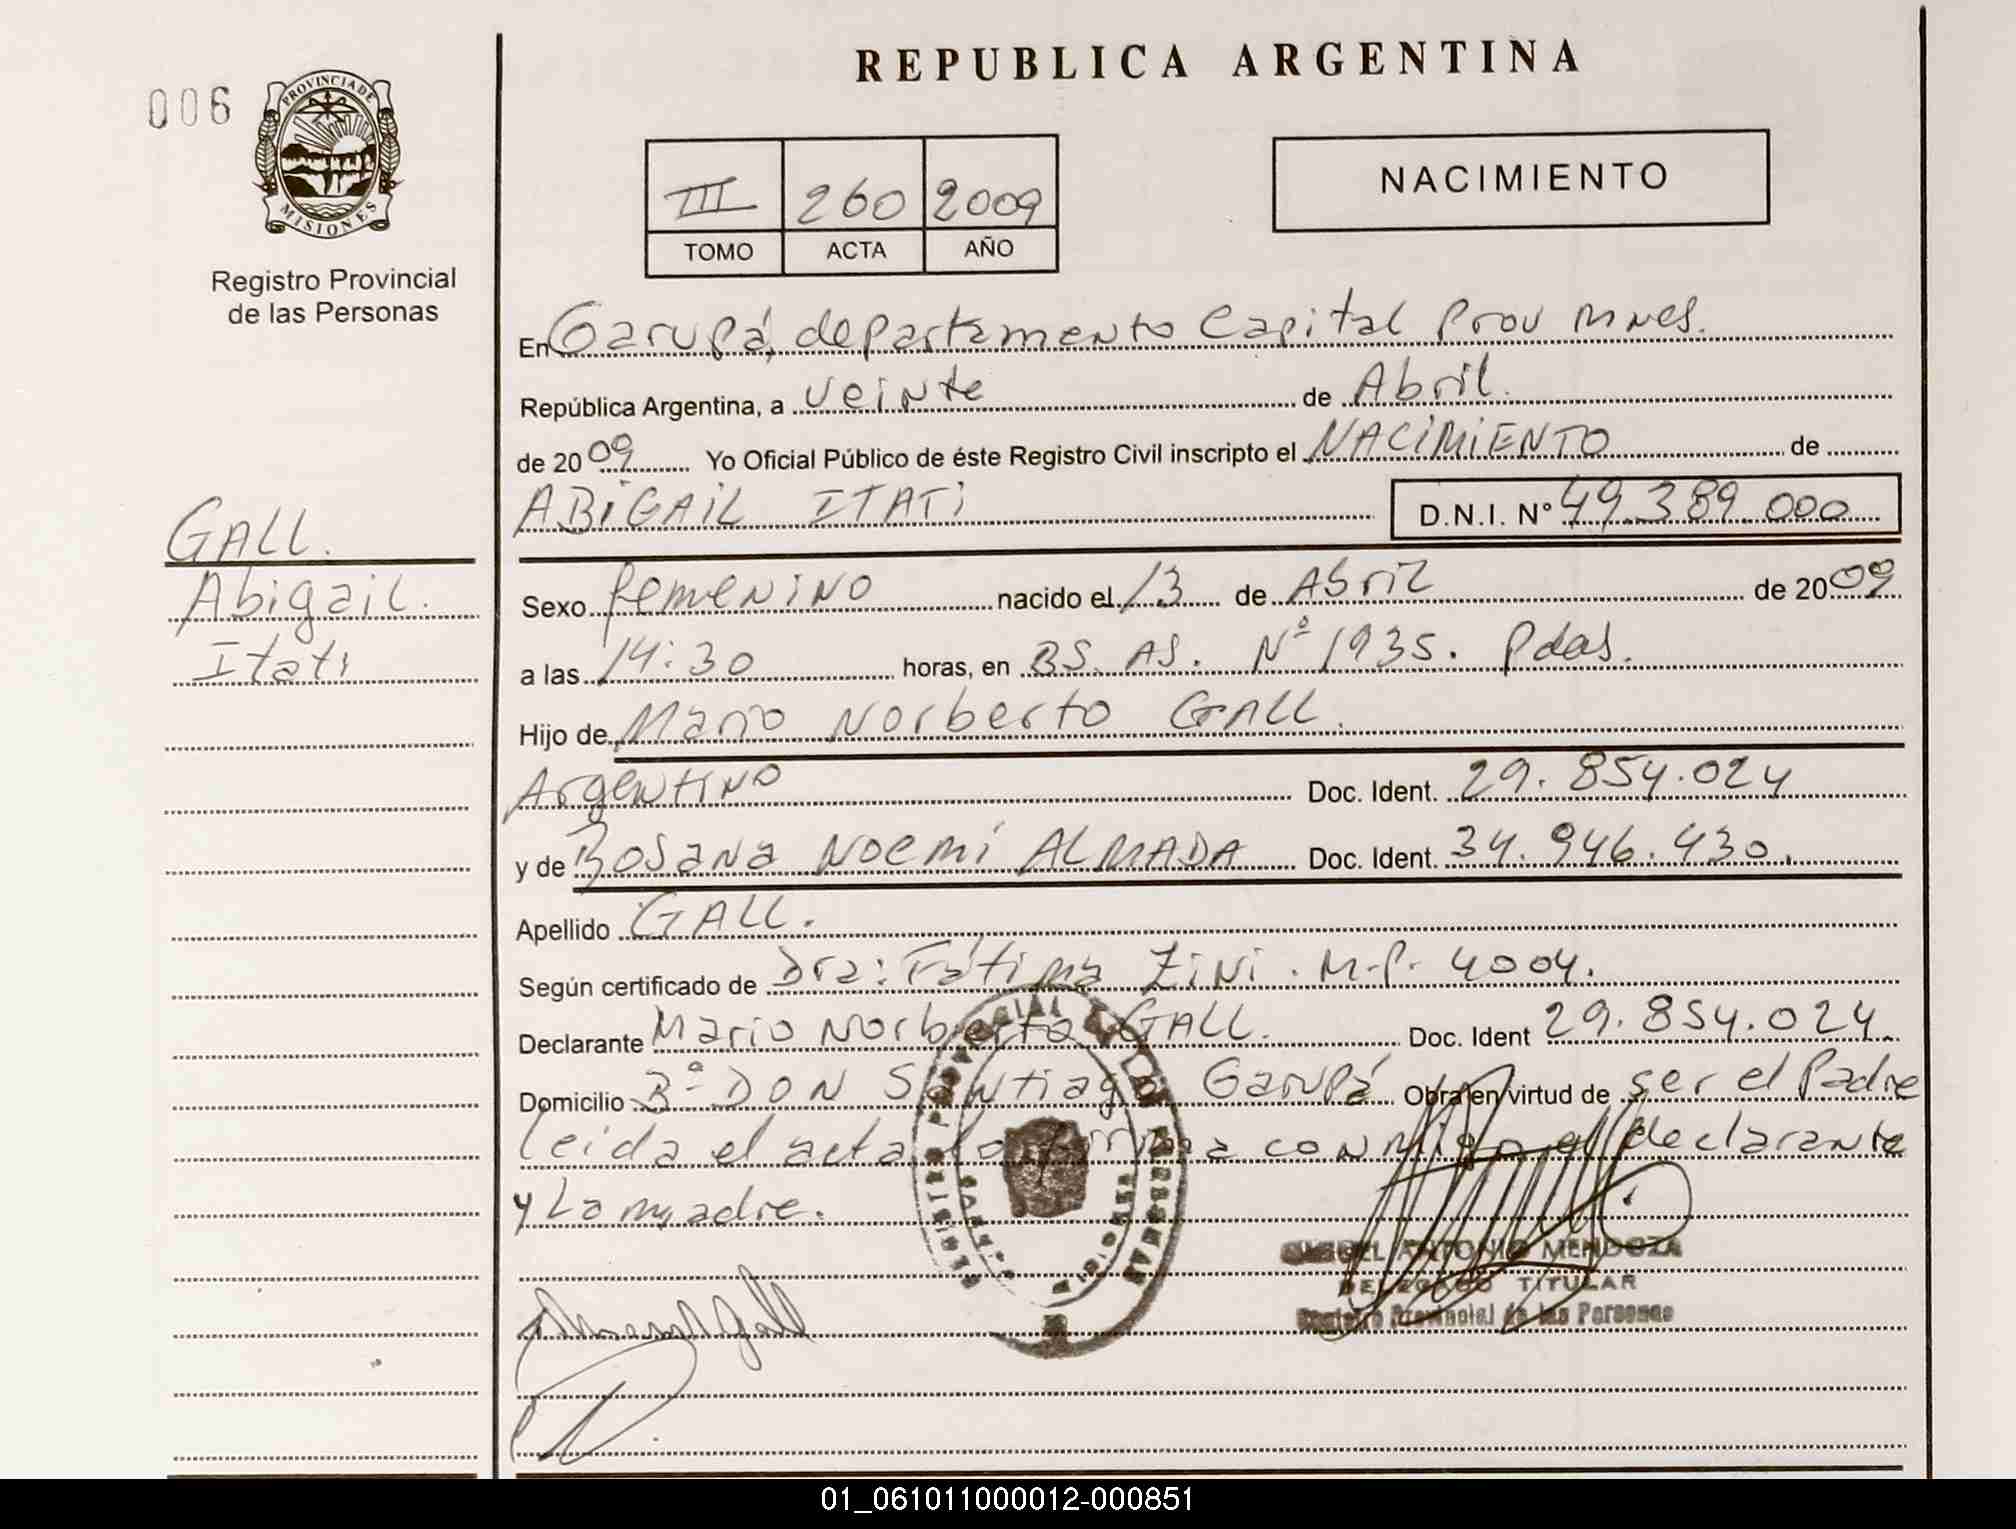 REPUBLICA ARGENTINA
006
PROVINCIA DE
MISIONES
Registro Provincial
de las Personas
III 260 2009
TOMO ACTA AÑO
NACIMIENTO
En Garupá, departamento Capital Prov Mnes.
República Argentina, a veinte de Abril.
de 2009 Yo Oficial Público de éste Registro Civil inscripto el NACIMIENTO de
ABIGAIL ITATI D.N.I. Nº 49.389.000
GALL.
Abigail.
Itati
Sexo femenino nacido el 13 de Abril de 2009
a las 14:30 horas, en BS. AS. Nº 1935. Pdas.
Hijo de Mario Norberto GALL.
Argentino Doc. Ident. 29.854.024
y de Rosana Noemí ALMADA Doc. Ident. 34.946.430.
Apellido GALL.
Según certificado de Dra: Fátima Zini. M.P. 4004.
Declarante Mario Norberto GALL. Doc. Ident 29.854.024.
Domicilio Bº DON Santiago Garupá Obra en virtud de ser el Padre
leida el acta la firma conmigo el declarante
y La madre.
MIGUEL ANTONIO MENDOZA
DELEGADO TITULAR
Registro Provincial de las Personas
01_061011000012-000851